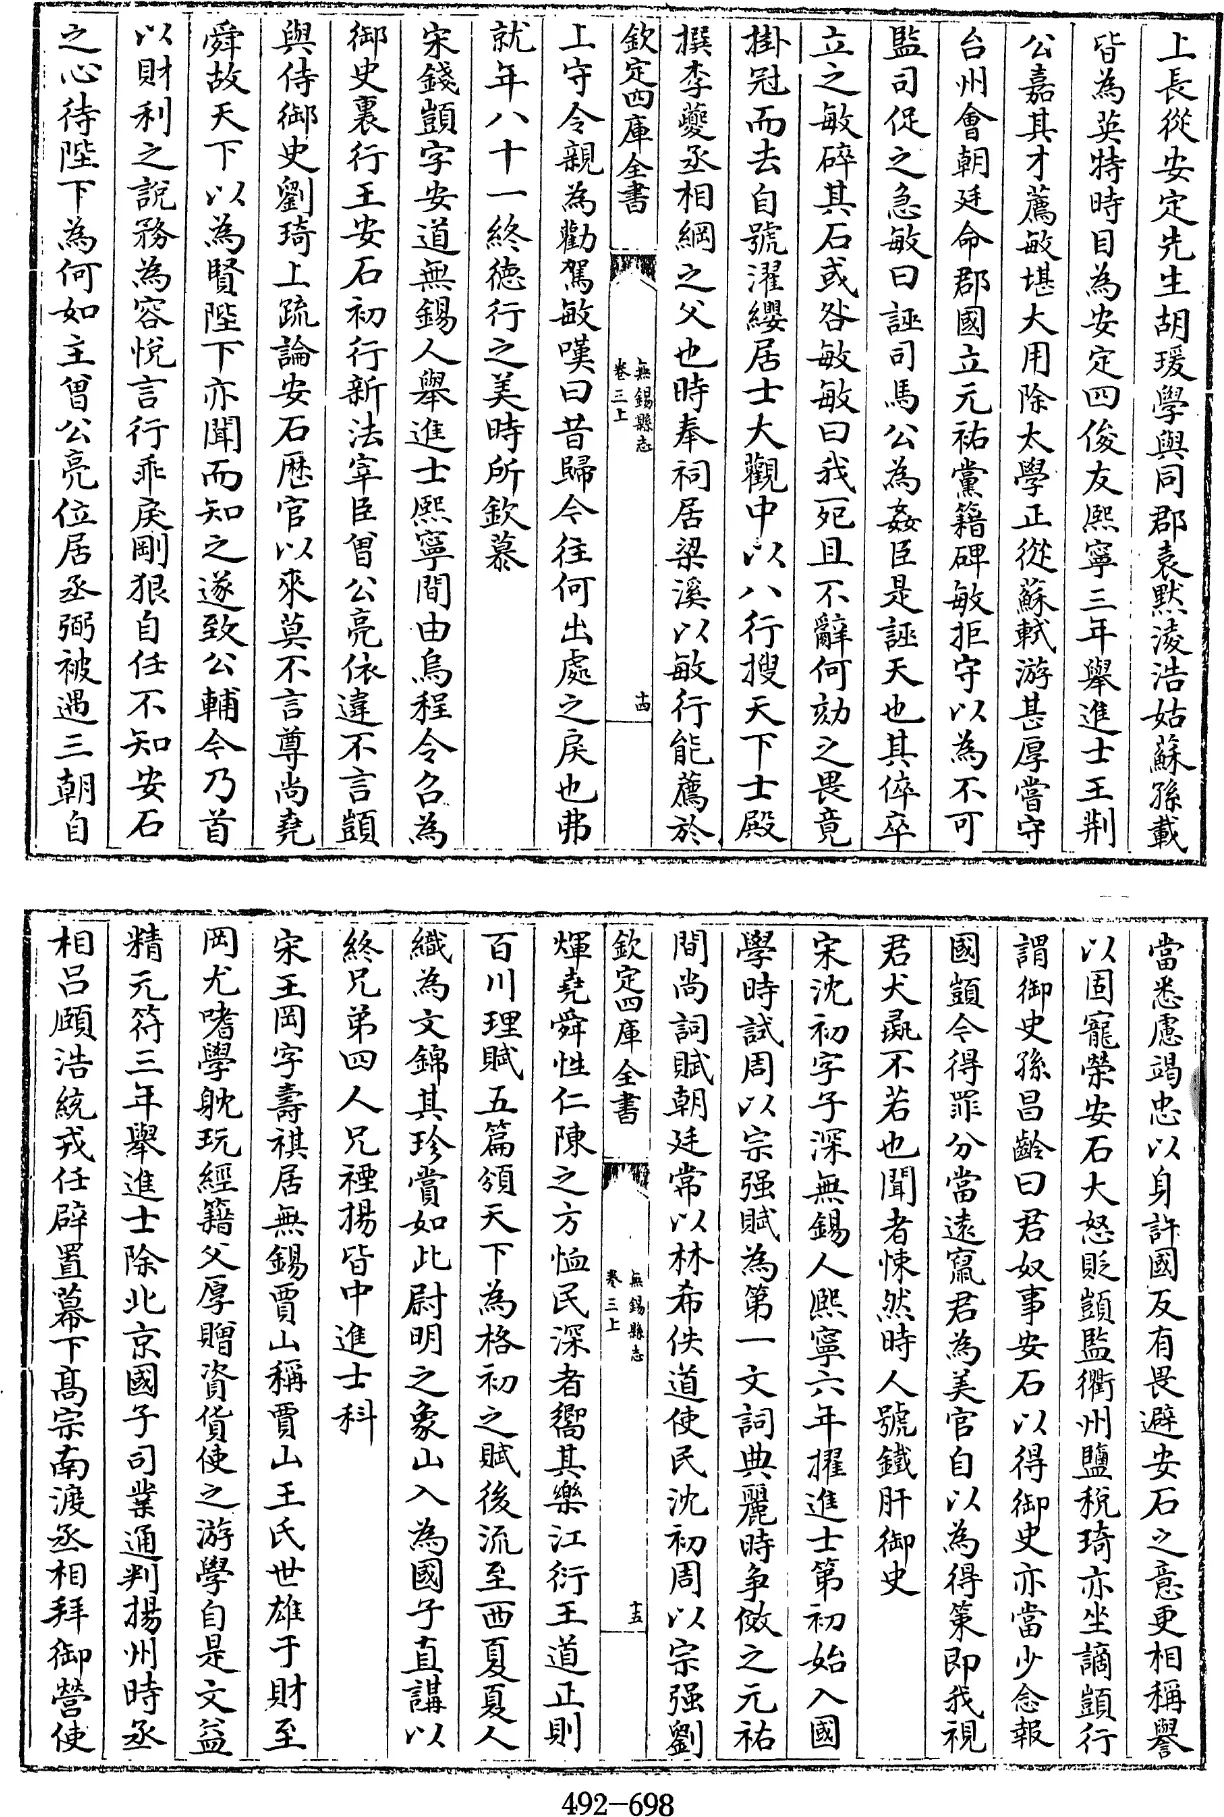 上長從安定先生胡瑗學與同郡袁默淩浩姑蘇孫載
皆為英特時目為安定四俊友熙寧三年舉進士王荆
公嘉其才薦敏堪大用除太學正從蘇軾游甚厚嘗守
台州會朝廷命郡國立元祐黨籍碑敏拒守以為不可
監司促之急敏曰誣司馬公為姦臣是誣天也其倅卒
立之敏碎其石或咎敏敏曰我死且不辭何劾之畏竟
掛冠而去自號濯纓居士大觀中以八行搜天下士殿
撰李夔丞相綱之父也時奉祠居梁溪以敏行能薦於
欽定四庫全書
無錫縣志
卷三上
十四
上守令親為勸駕敏嘆曰昔歸今往何出處之戾也弗
就年八十一終德行之美時所欽慕
宋錢顗字安道無錫人舉進士熙寧間由烏程令召為
御史裏行王安石初行新法宰臣曾公亮依違不言顗
與侍御史劉琦上疏論安石歷官以來莫不言尊尚堯
舜故天下以為賢陛下亦聞而知之遂致公輔今乃首
以財利之說務為容悅言行乖戾剛狠自任不知安石
之心待陛下為何如主曾公亮位居丞弼被遇三朝自
當悉慮竭忠以身許國反有畏避安石之意更相稱譽
以固寵榮安石大怒貶顗監衢州鹽稅琦亦坐謫顗行
謂御史孫昌齡曰君奴事安石以得御史亦當少念報
國顗今得罪分當遠竄君為美官自以為得策即我視
君犬彘不若也聞者悚然時人號鐵肝御史
宋沈初字子深無錫人熙寧六年擢進士第初始入國
學時試周以宗强賦為第一文詞典麗時争倣之元祐
間尚詞賦朝廷常以林希佚道使民沈初周以宗强劉
欽定四庫全書
無錫縣志
卷三上
十五
煇堯舜性仁陳之方恤民深者嚮其樂江衍王道正則
百川理賦五篇頒天下為格初之賦後流至西夏夏人
織為文錦其珍賞如此尉明之象山入為國子直講以
終兄弟四人兄禋揚皆中進士科
宋王岡字壽祺居無錫賈山稱賈山王氏世雄于財至
岡尤嗜學躭玩經籍父厚贈資貨使之游學自是文益
精元符三年舉進士除北京國子司業通判揚州時丞
相呂頤浩統戎任辟置幕下髙宗南渡丞相拜御營使
492-698